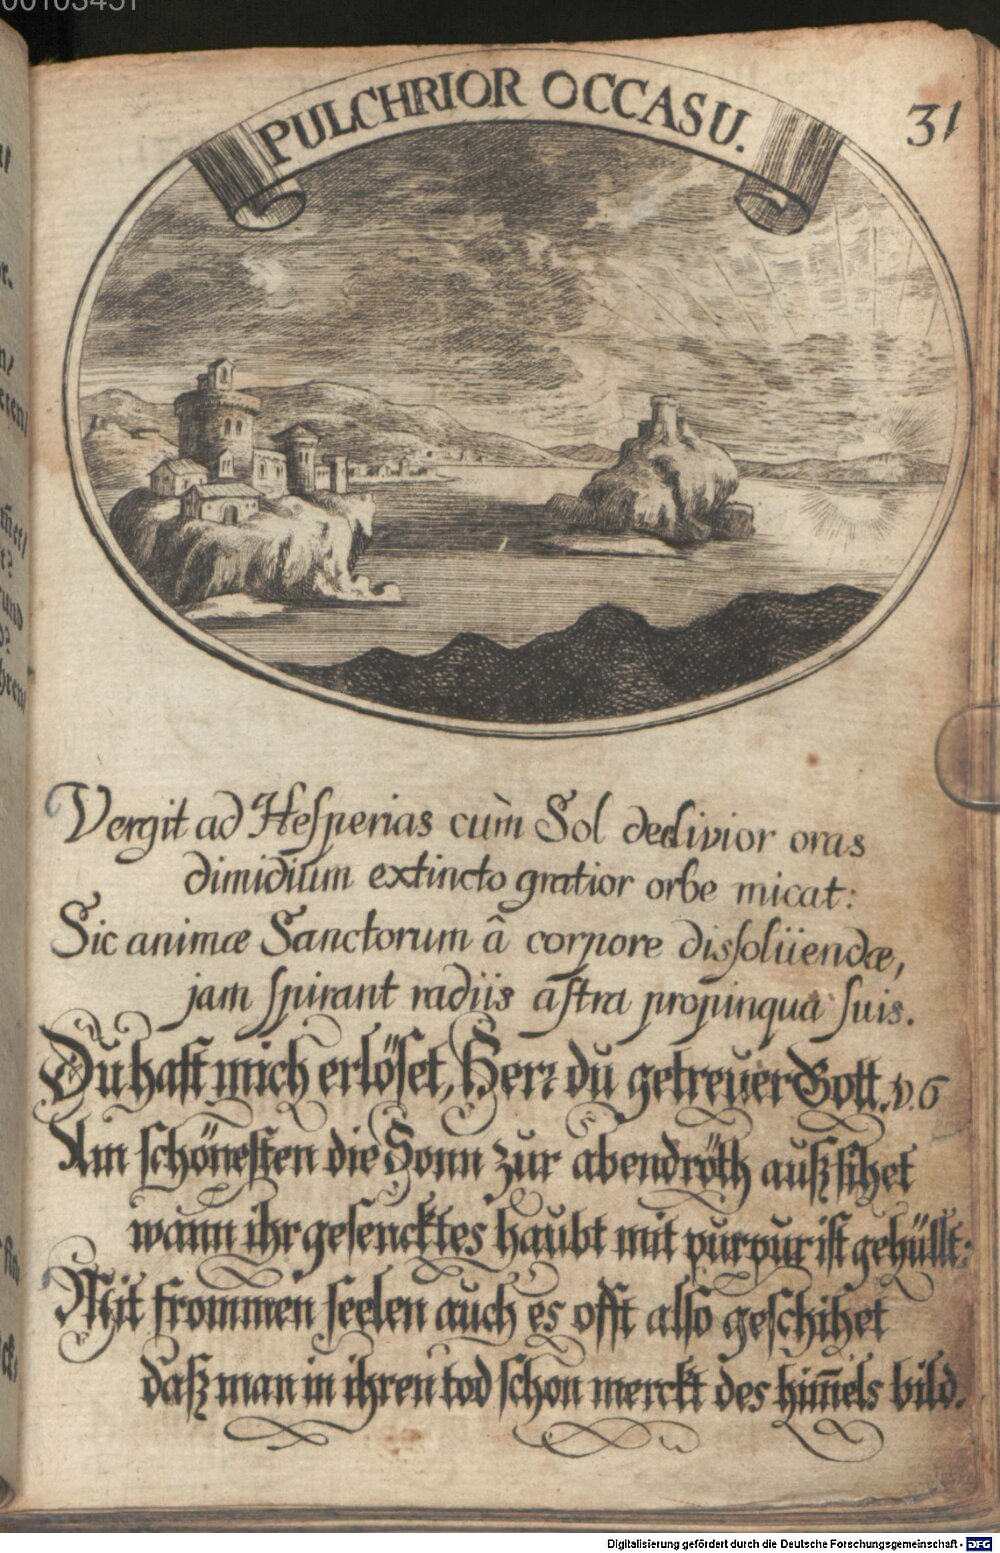 00103451
PULCHRIOR OCCASU.
31
Vergit ad Hesperias cùm Sol declivior oras
dimidium extincto gratior orbe micat:
Sic animæ Sanctorum â corpore dissolüendæ,
jam spirant radiis astra propinqua suis.
Du hast mich erlöset, Herr du getreuer Gott. v. 6
Am schönesten die Sonn zur abendröth außsihet
wann ihr gesencktes haubt mit purpur ist gehüllt:
Mit frommen seelen auch es offt also geschihet
daß man in ihren tod schon merckt des him̄els bild.
Digitalisierung gefördert durch die Deutsche Forschungsgemeinschaft - DFG